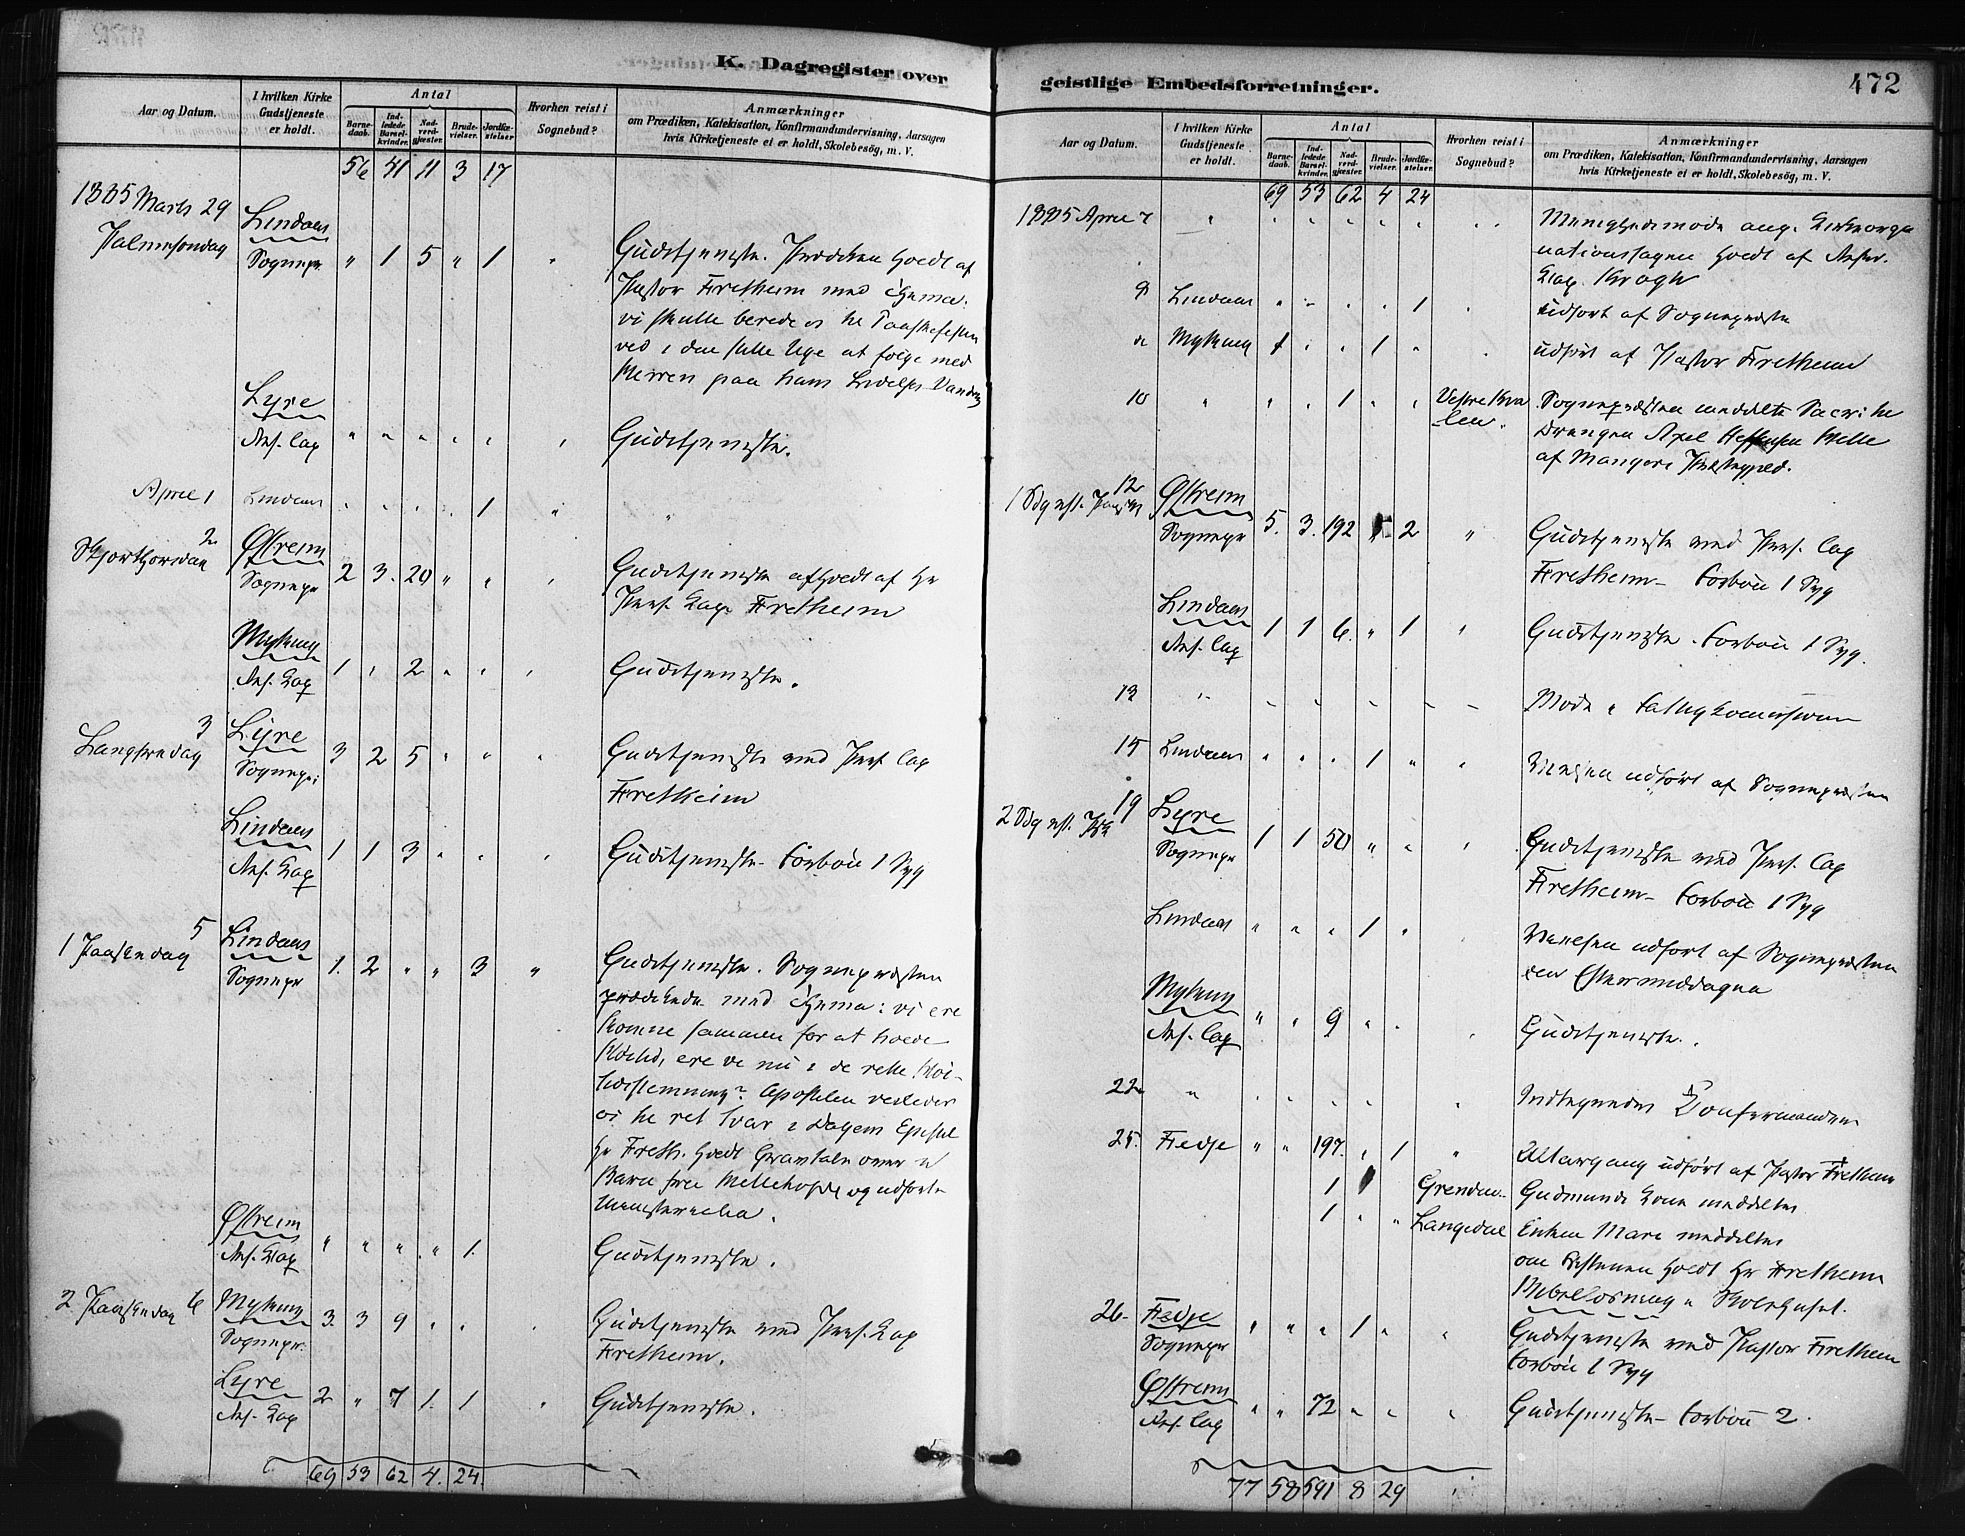 K. Dagregister over
Aar og Datum.
I hvilken Kirke Gudstjeneste er holdt.
Antal
Barne-daab.
Ind-ledede Barsel-kvinder.
Nad-verd-gjæster.
Brude-vielser.
Jordfæ-stelser.
Hvorhen reist i Sognebud?
Anmærkninger
om Prædiken, Katekisation, Konfirmandundervisning, Aarsagen
hvis Kirketjeneste ei er holdt, Skolebesög, m. V.
56 41 11 3 17
1885 Marts 29 Lindaas
Palmesøndag Sognepr " 1 5 " 1 " Gudstjeneste. Prædiken holdt af
Pastor Fretheim med Thema:
vi skulle berede os til Paaskefesten
ved i den stille Uge at følge med
Herren paa hans Lidelses Vandring
Lyre
Res. Cap " " " " " " Gudstjeneste.
April 1 Lindaas " " " " 1 " "
2 Østreim
Skjærthorsdag Sognepr 2 3 20 " " " Gudstjeneste afholdt af Hr
Pers. Cap. Fretheim
Myking
Res. Cap 1 " 2 " " " Gudstjeneste.
3 Lyre
Langfredag Sognepr. 3 2 5 " " " Gudstjeneste ved Pers. Cap
Fretheim
Lindaas
Res. Cap 1 1 3 " " " Gudstjeneste - Forbøn 1 Syg
5 Lindaas
1 Paaskedag Sognepr 1 2 " " 3 " Gudstjeneste. Sognepræsten
prædikede med Thema: vi ere
komne sammen for at holde
Høitid, ere vi nu i de rette Høi-
tidsstemning? Apostelen veileder
os til ret Svar i Dagens Epistel
Hr Freth. holdt Gravtale over et
Barn fra og udførte
Ministerialia.
Østreim
Res. Cap " " " " 1 Gudstjeneste.
2 Paaskedag 6 Myking 3 3 9 " " " Gudstjeneste ved Pers. Cap
Sognepr. Fretheim.
Lyre 2 " 7 1 1 " Gudstjeneste.
Res. Cap
69 53 62 4 24
geistlige Embedsforretninger.
472
Aar og Datum.
I hvilken Kirke Gudstjeneste er holdt.
Antal
Barne-daab.
Ind-ledede Barsel-kvinder.
Nad-verd-gjæster.
Brude-vielser.
Jordfæ-stelser.
Hvorhen reist i Sognebud?
Anmærkninger
om Prædiken, Katekisation, Konfirmandundervisning, Aarsagen
hvis Kirketjeneste ei er holdt, Skolebesög, m. V.
69 53 62 4 24
1885 April 7 " " " " " " " Menighedsmøde ang.
holdt af Res.
Cap. Krogh
8 Lindaas " " " " 1 " udført af Sognepræsten
" Myking 1 " " 1 " " udført af Pastor Fretheim
10 " " " 1 " " Vestre Kva- Sognepræsten meddelte Sacr. til
len. Drengen Axel
af Mangers Præstegjeld.
12 Østreim
1 Sdg eft. Paaske Sognepr 5 3 192 2 " Gudstjeneste ved Pers. Cap
Fretheim - Forbøn 1 Syg
Lindaas
Res. Cap 1 1 6 " 1 " Gudstjeneste - Forbøn 1 Syg.
13 " " " " " " " Møde i
15 Lindaas " " " 1 " " Vielsen udført af Sognepræsten
19 Lyre
2 Sdg eft. Psk Sognepr 1 1 50 " " " Gudstjeneste ved Pers. Cap
Fretheim - Forbøn 1 Syg
Lindaas " " " 1 " " Vielsen udført af Sognepræsten
den Eftermiddagen
Myking
Res. Cap " " 9 " " " Gudstjeneste.
22 " " " " " " Indtegnedes Confirmanden
25 Fedje " " 197 " 1 " Altergang udført af Pastor Fretheim
1 Grenden Gudmunds Kone meddeltes
1 " " Langedal Enken Mari meddeltes
om Aftenen holdt Hr Fretheim
Bibellæsning i Skolehuset.
26 Fedje " " " 1 " " Gudstjeneste ved Pastor Fretheim
Sognepr Forbøn 1 Syg
Østreim
Res. Cap " " 72 " " " Gudstjeneste - Forbøn 2.
77 58 591 8 29